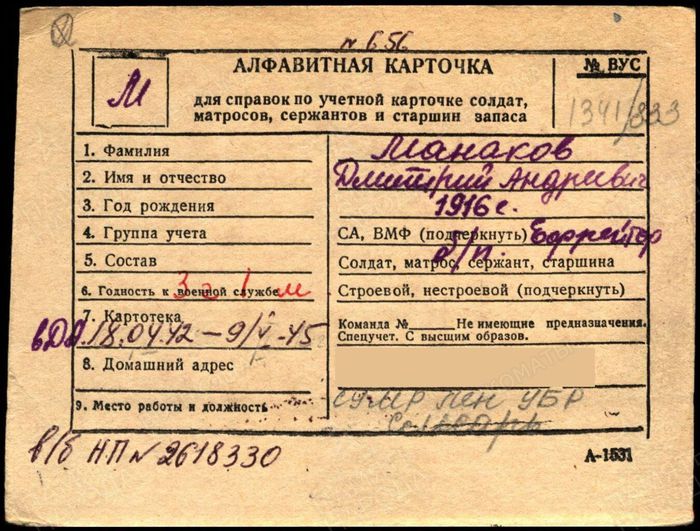 № 656
АЛФАВИТНАЯ КАРТОЧКА
№ ВУС
М
для справок по учетной карточке солдат,
матросов, сержантов и старшин запаса
1341/333
1. Фамилия
Манаков
2. Имя и отчество
Дмитрий Андреевич
3. Год рождения
1916 г.
4. Группа учета
СА, ВМФ (подчеркнуть) Ефрейтор
5. Состав
б/п.
Солдат, матрос, сержант, старшина
6. Годность к военной службе
Строевой, нестроевой (подчеркнуть)
7. Картотека
18.04.42 — 9/V-45
Команда №______ Не имеющие предназначения.
Спецучет. С высшим образов.
8. Домашний адрес
9. Место работы и должность
в/б НП № 2618330
А-1531